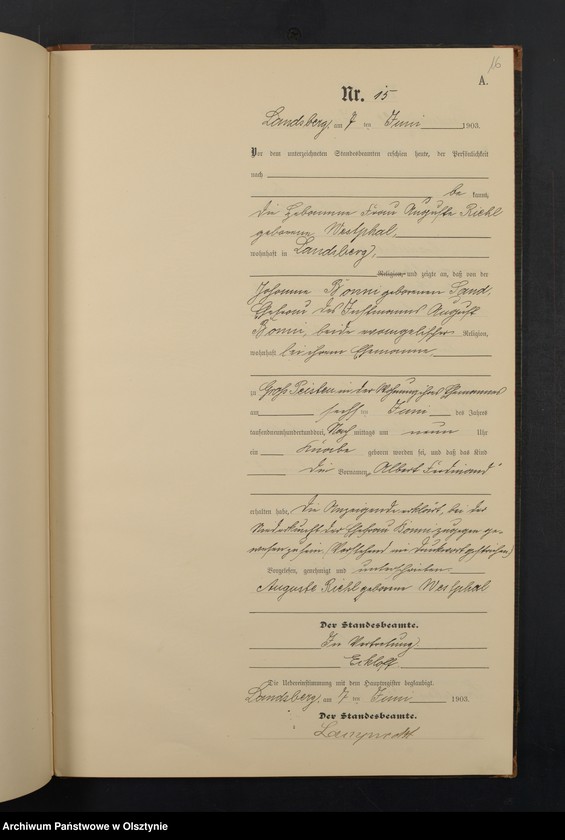 16
A.
Nr. 15
Landsberg, am 7 ten Juni 1903.
Vor dem unterzeichneten Standesbeamten erschien heute, der Persönlichkeit
nach
be kannt,
die Hebamme Frau Auguste Riehl
geborene Westphal,
wohnhaft in Landsberg,
Religion, und zeigte an, daß von der
Johanne Bönni geborenen Sand,
Ehefrau des Instmanns August
Bönni, beide evangelischer Religion,
wohnhaft bei ihrem Ehemanne
zu Groß Peisten in der Wohnung ihres Ehemannes
am sechs ten Juni des Jahres
tausendneunhundertunddrei, Nach mittags um neun Uhr
ein Knabe geboren worden sei, und daß das Kind
die Vornamen „Albert Ferdinand“
erhalten habe. Die Anzeigende erklärt, bei der
Niederkunft der Ehefrau Bönni zugegen ge-
wesen zu sein. (Vorstehend ein Druckwort gestrichen)
Vorgelesen, genehmigt und unterschrieben
Auguste Riehl geborene Westphal
Der Standesbeamte.
In Vertretung
Eckloff
Die Uebereinstimmung mit dem Hauptregister beglaubigt.
Landsberg, am 7 ten Juni 1903.
Der Standesbeamte.
Archiwum Państwowe w Olsztynie